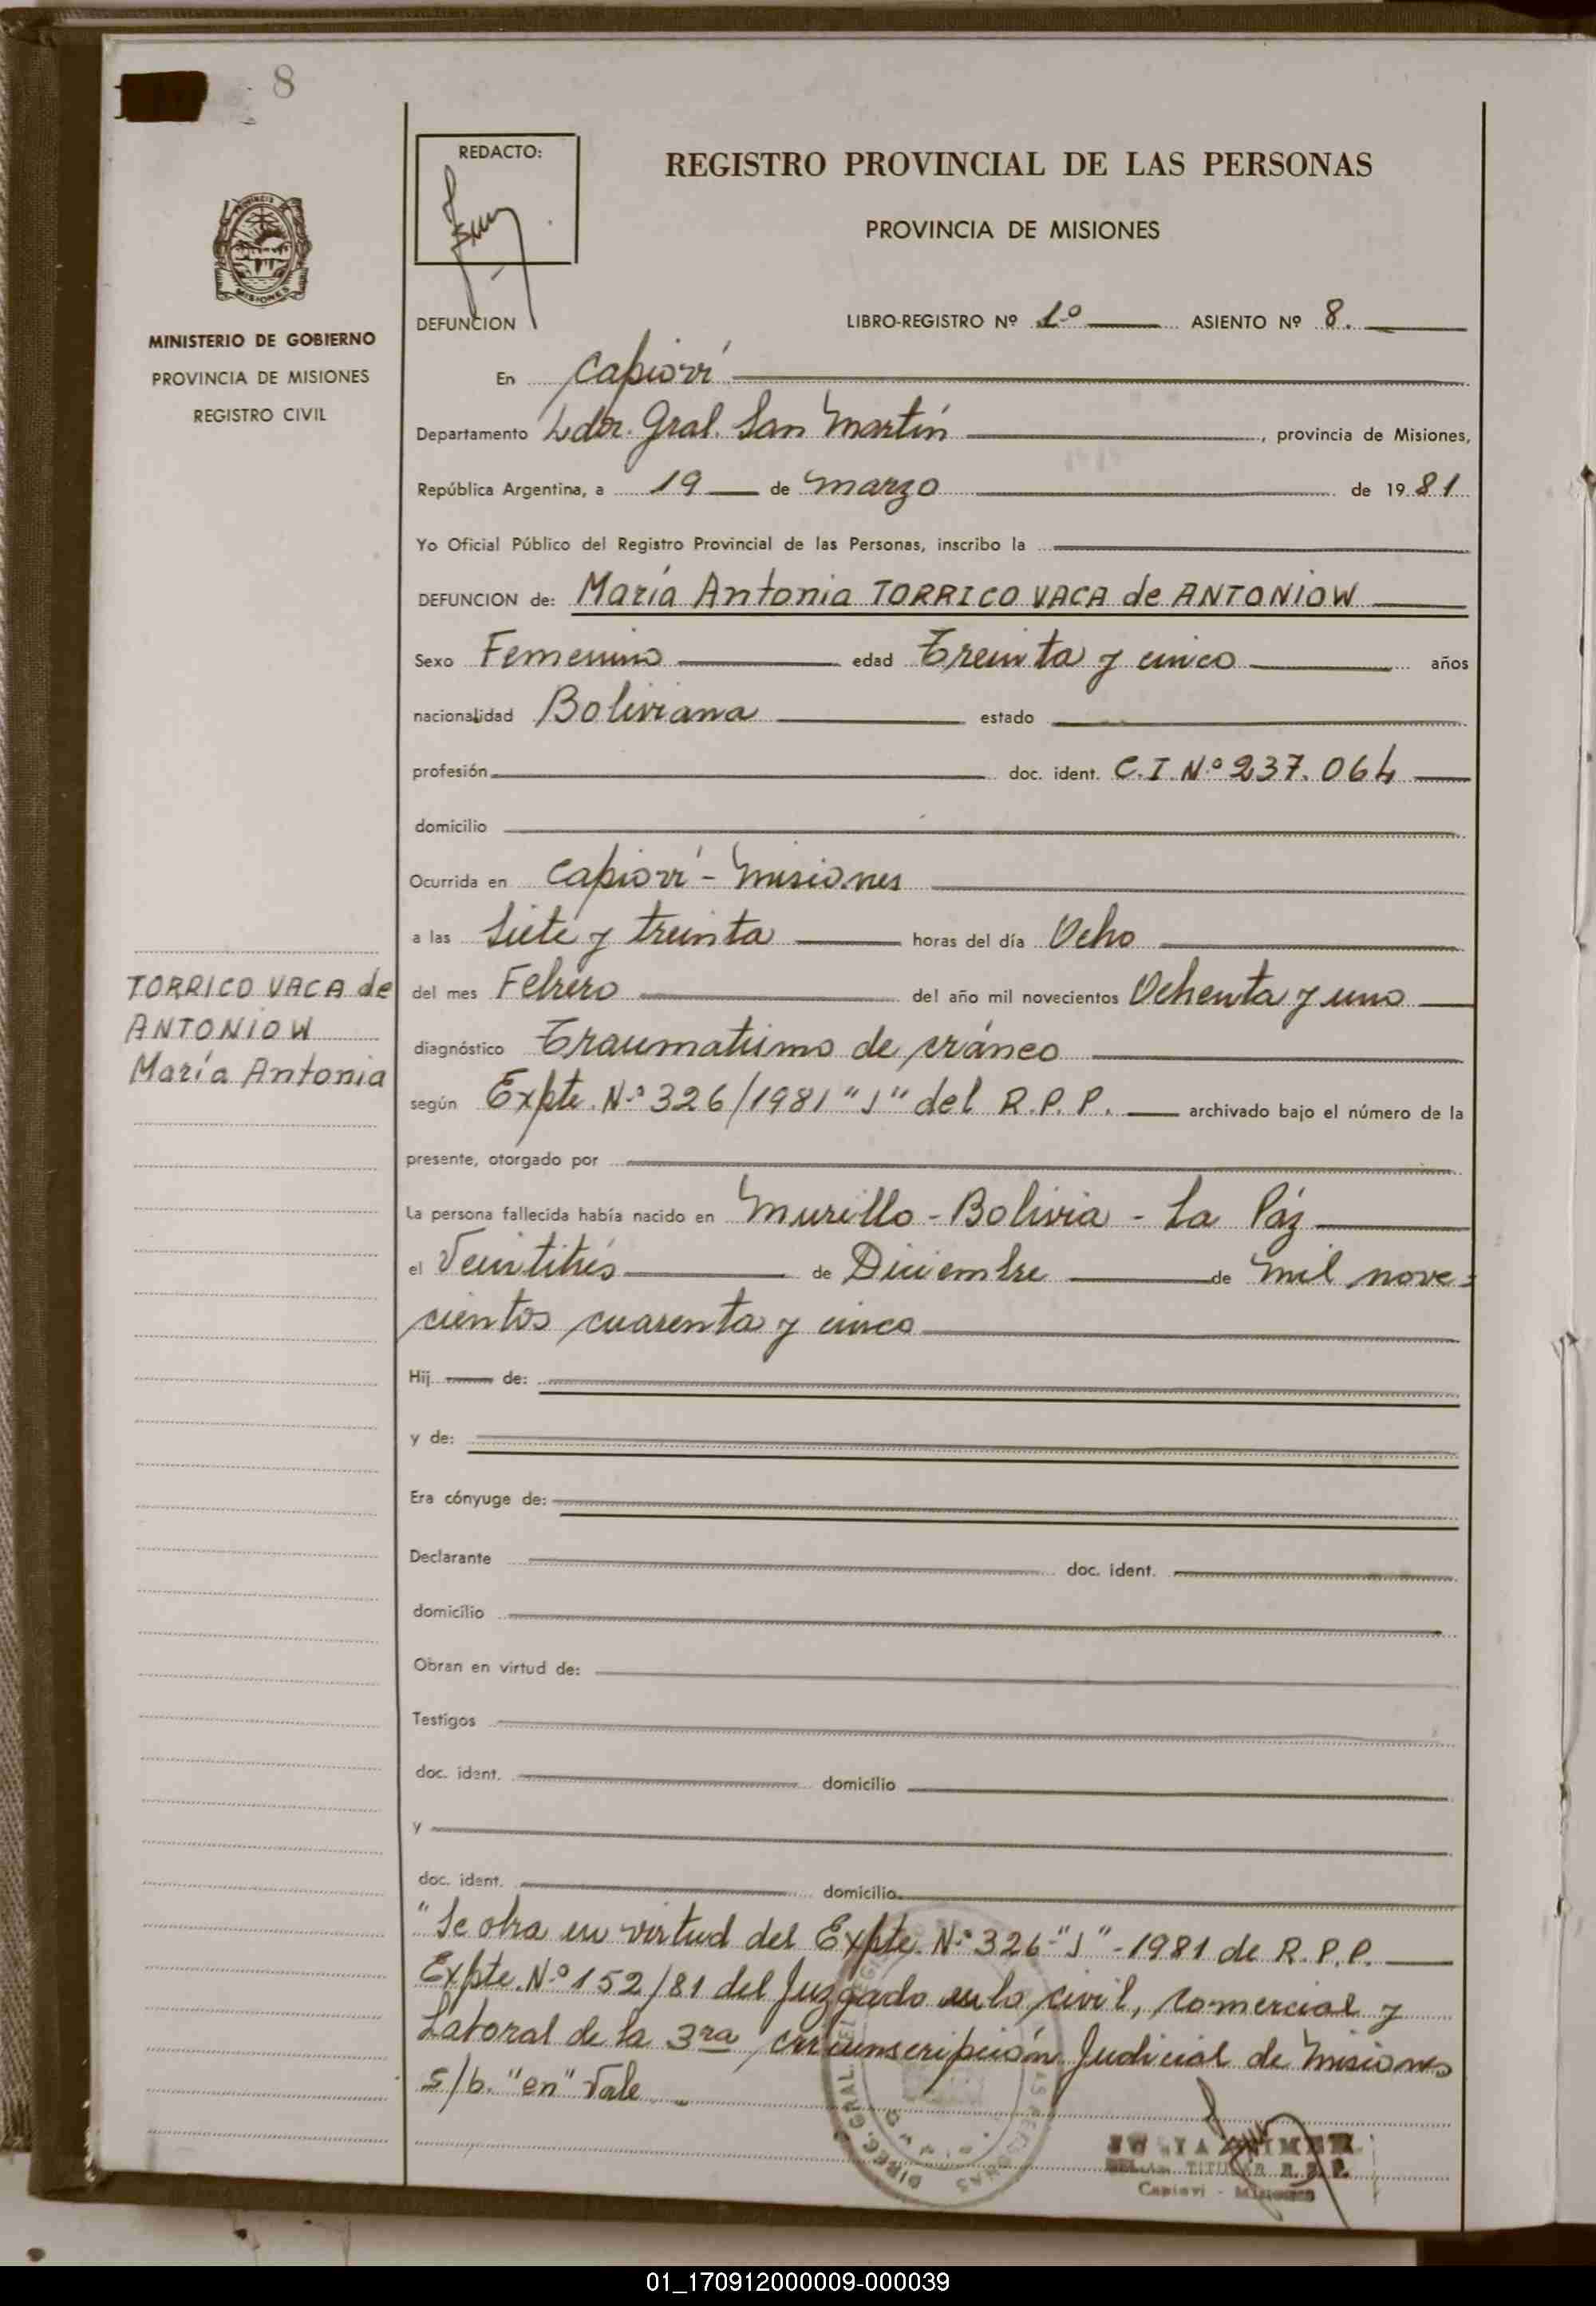 8
REDACTO:
REGISTRO PROVINCIAL DE LAS PERSONAS
PROVINCIA DE MISIONES
MISIONES
MINISTERIO DE GOBIERNO
PROVINCIA DE MISIONES
REGISTRO CIVIL
DEFUNCION
LIBRO-REGISTRO Nº 1º ASIENTO Nº 8.
En Capioví
Departamento Ldor. Gral. San Martín, provincia de Misiones,
República Argentina, a 19 de marzo de 1981
Yo Oficial Público del Registro Provincial de las Personas, inscribo la
DEFUNCION de: María Antonia TORRICO VACA de ANTONIOW
Sexo Femenino edad Treinta y cinco años
nacionalidad Boliviana estado
profesión doc. ident. C.I. Nº 237.064
domicilio
Ocurrida en Capioví - Misiones
a las Siete y treinta horas del día Ocho
del mes Febrero del año mil novecientos Ochenta y uno
TORRICO VACA de
ANTONIOW
María Antonia
diagnóstico Traumatismo de cráneo
según Expte. Nº 326/1981 "J" del R.P.P. archivado bajo el número de la
presente, otorgado por
La persona fallecida había nacido en Murillo - Bolivia - La Páz
el Veintitrés de Diciembre de mil nove=
cientos cuarenta y cinco
Hij de:
y de:
Era cónyuge de:
Declarante doc. ident.
domicilio
Obran en virtud de:
Testigos
doc. ident. domicilio
y
doc. ident. domicilio
"Se obra en virtud del Expte. Nº 326-"J"-1981 de R.P.P.
Expte. Nº 152/81 del Juzgado en lo civil, comercial y
Laboral de la 3ra circunscripción Judicial de Misiones
S/b. "en" Vale
DIREC. GRAL. DEL
TITULAR R.P.P.
Capiovi - Misiones
01_170912000009-000039